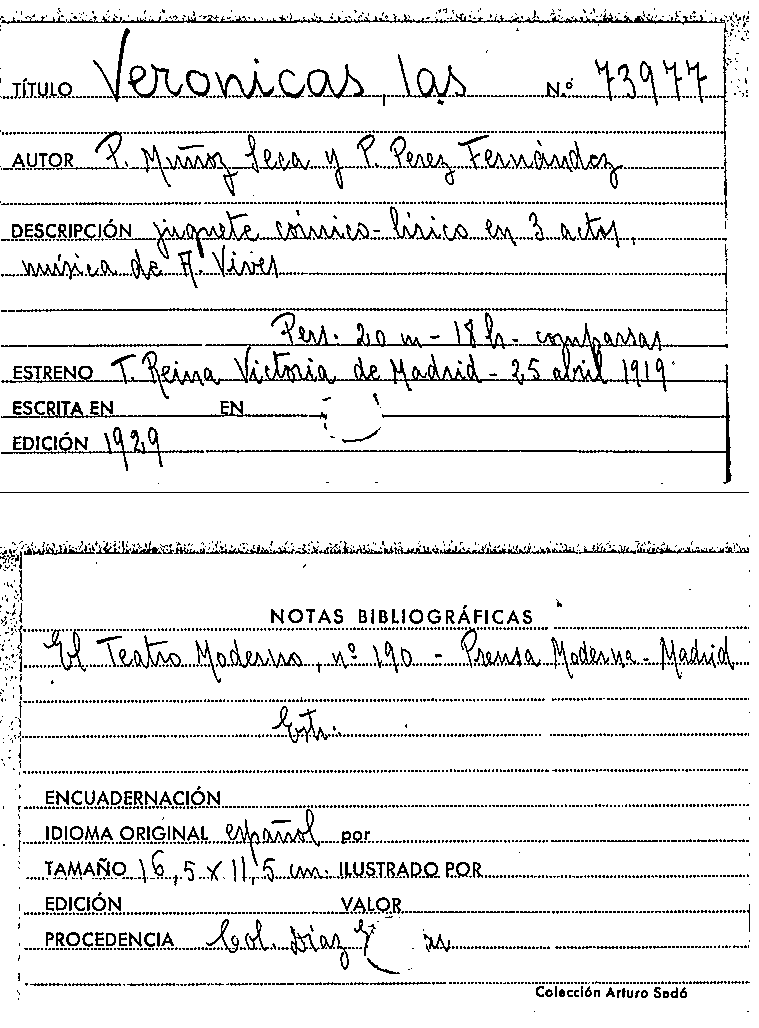 TÍTULO Veronicas, las N.º 73977
AUTOR P. Muñoz Seca y P. Perez Fernández
DESCRIPCIÓN juguete cómico-lírico en 3 actos,
música de A. Vives
Pers. 20 m - 18 h - comparsas
ESTRENO T. Reina Victoria de Madrid - 25 abril 1919
ESCRITA EN EN
EDICIÓN 1929
NOTAS BIBLIOGRÁFICAS
El Teatro Moderno, nº 190 - Prensa Moderna - Madrid
Estr.
ENCUADERNACIÓN
IDIOMA ORIGINAL español por
TAMAÑO 16,5 x 11,5 cm. ILUSTRADO POR
EDICIÓN VALOR
PROCEDENCIA Col. Díaz
Colección Arturo Sedó